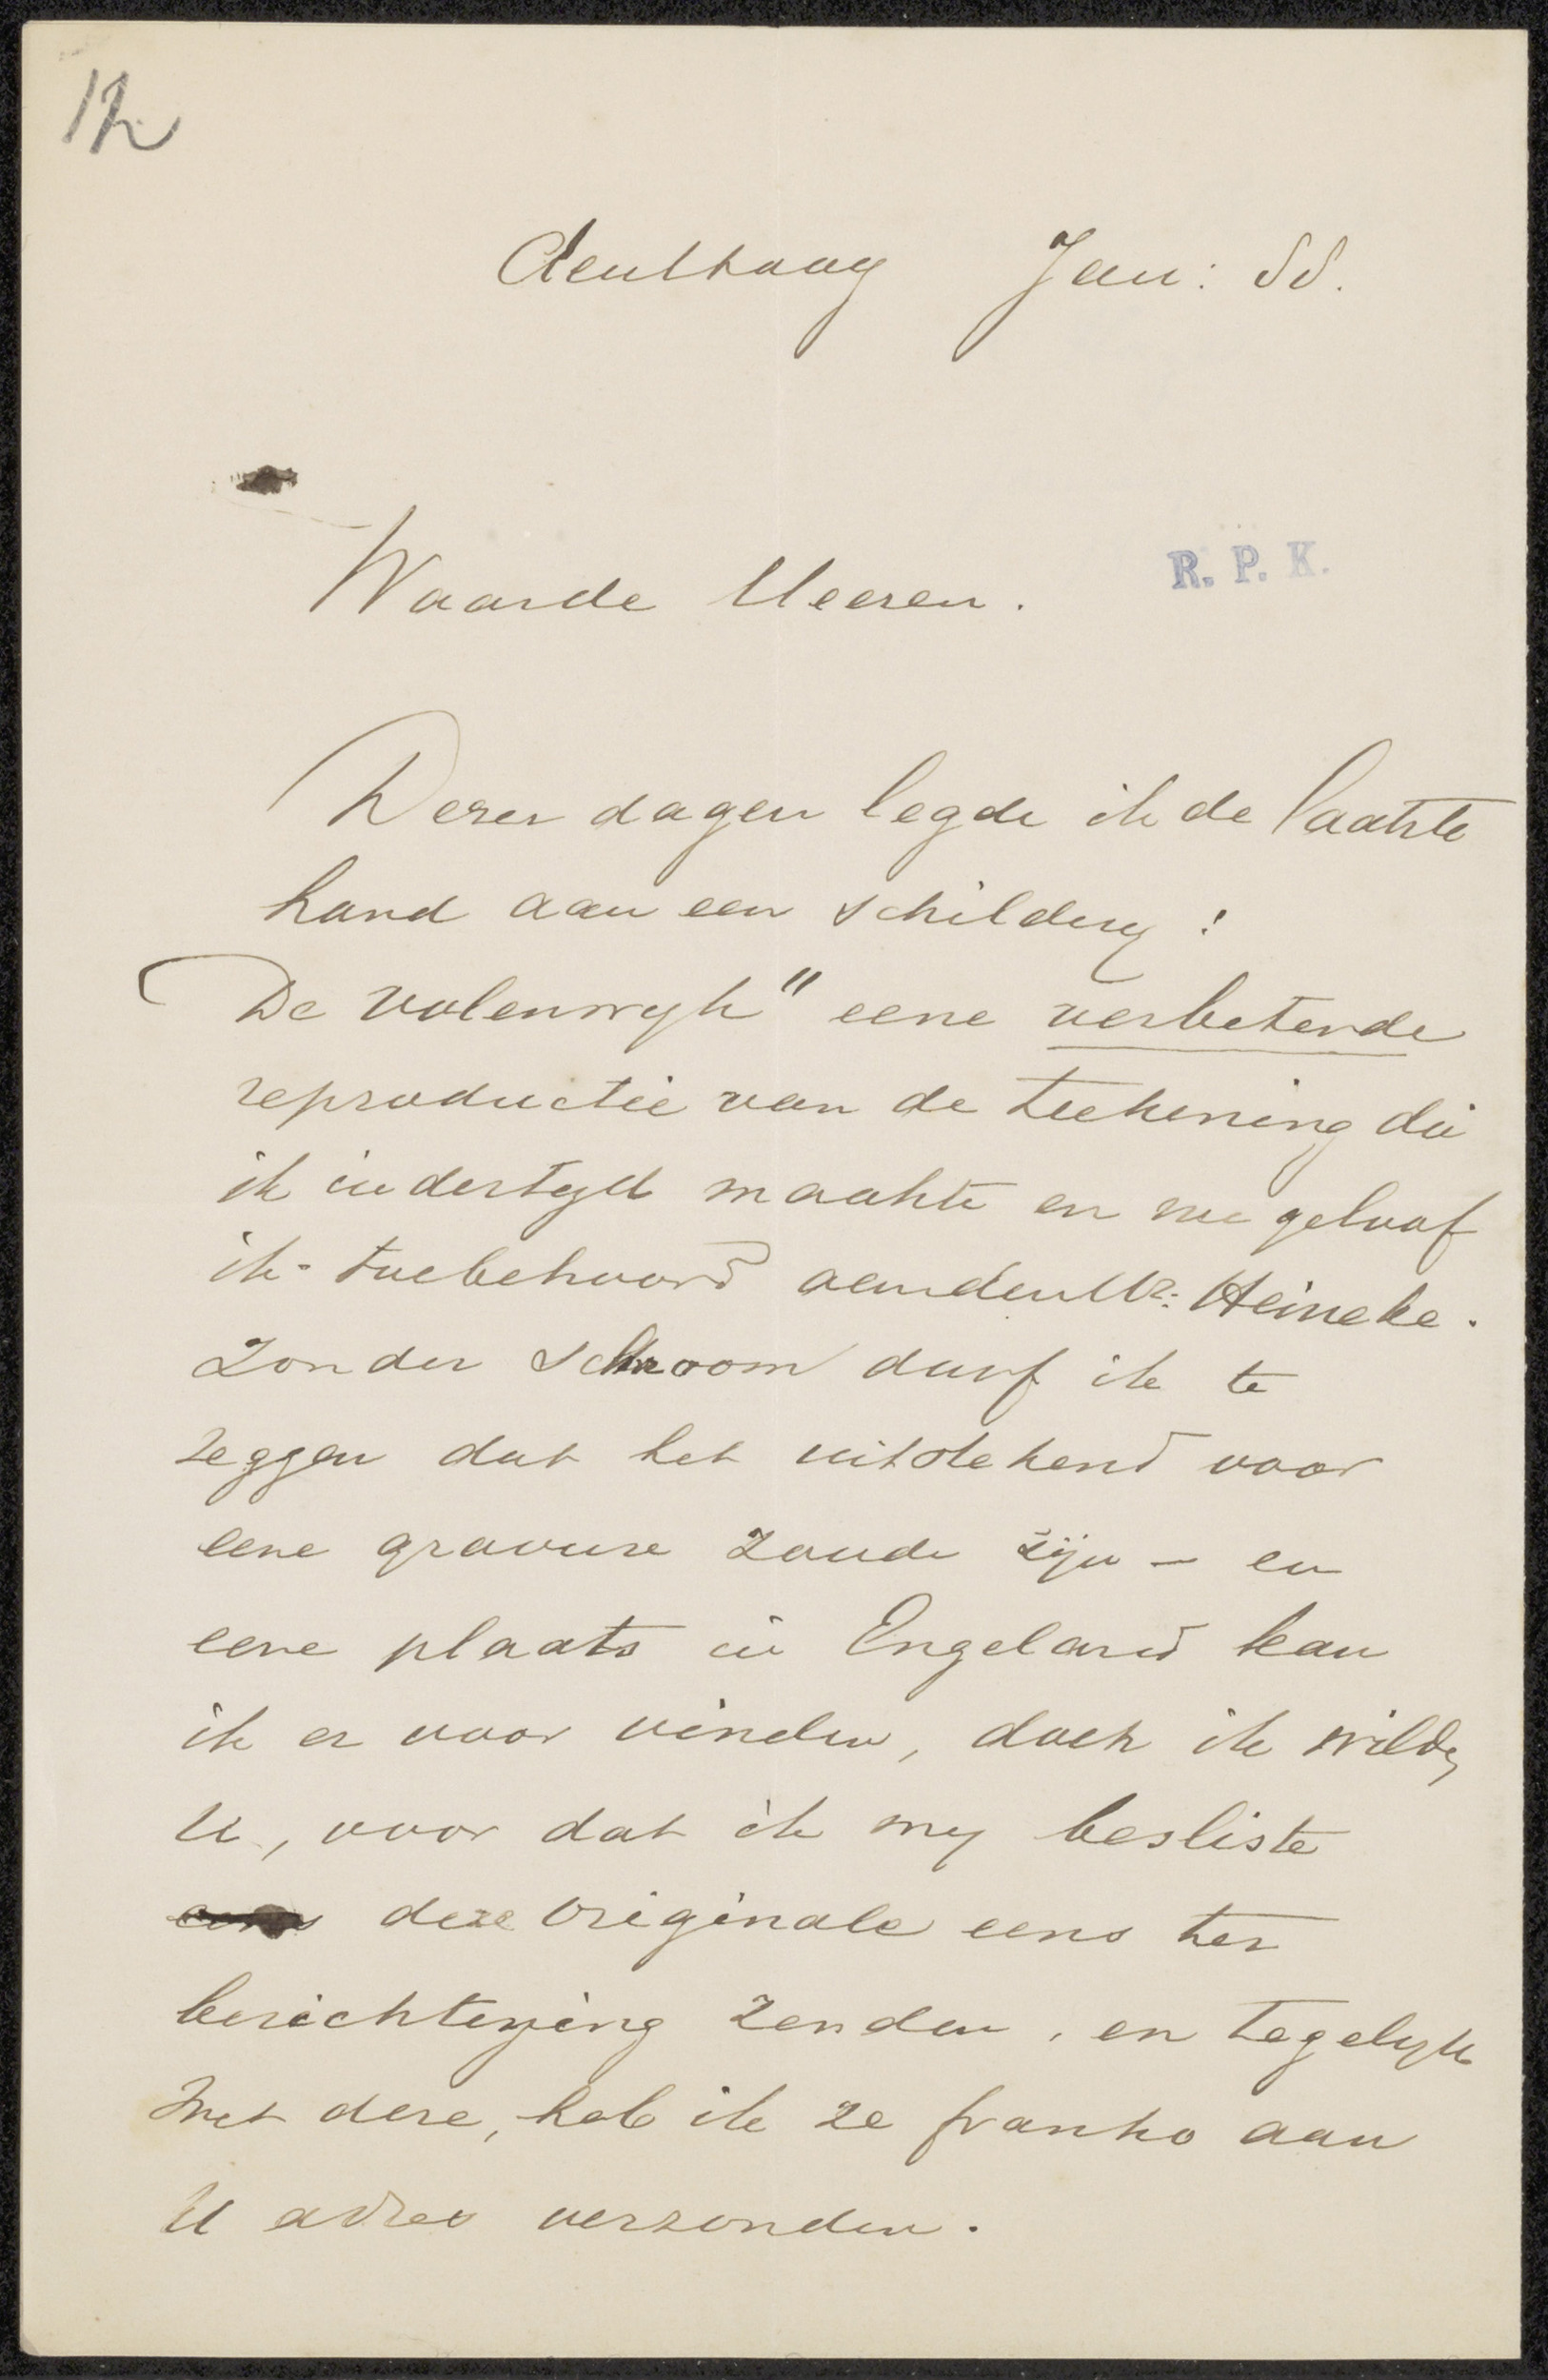 12
den Haag Jan: 88.
Waarde Heeren.
R. P. K.
Dezer dagen legde ik de laatste
hand aan een schildery:
De Volenwyk" eene verbeterde
reproductie van de teekening die
ik indertyd maakte en nu geloof
ik toebehoord aan den Hr: Heineke.
Zonder schroom durf ik te
zeggen dat het uitstekend voor
eene gravure zoude zijn - en
eene plaats in Engeland kan
ik er voor vinden, doch ik wilde
U, voor dat ik my besliste
deze originale eens ter
berichtiging zenden, en tegelyk
met deze, heb ik ze franko aan
U adres verzonden.